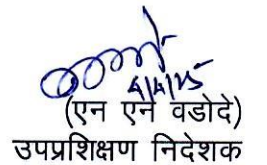 4/4/25
(एन एन वडोदे)
उपप्रशिक्षण निदेशक